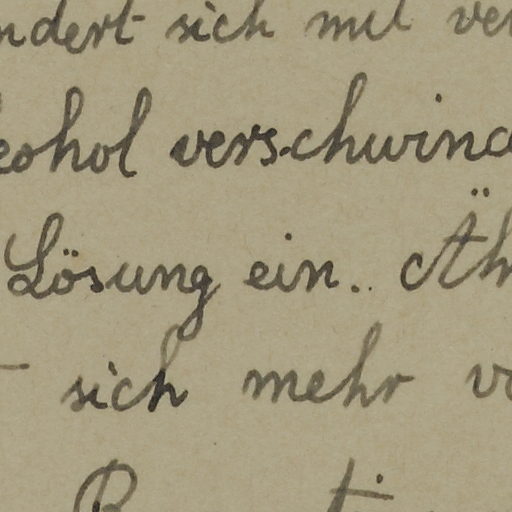 ndert sich mit ver
kohol verschwind
Lösung ein. Äh
sich mehr vo